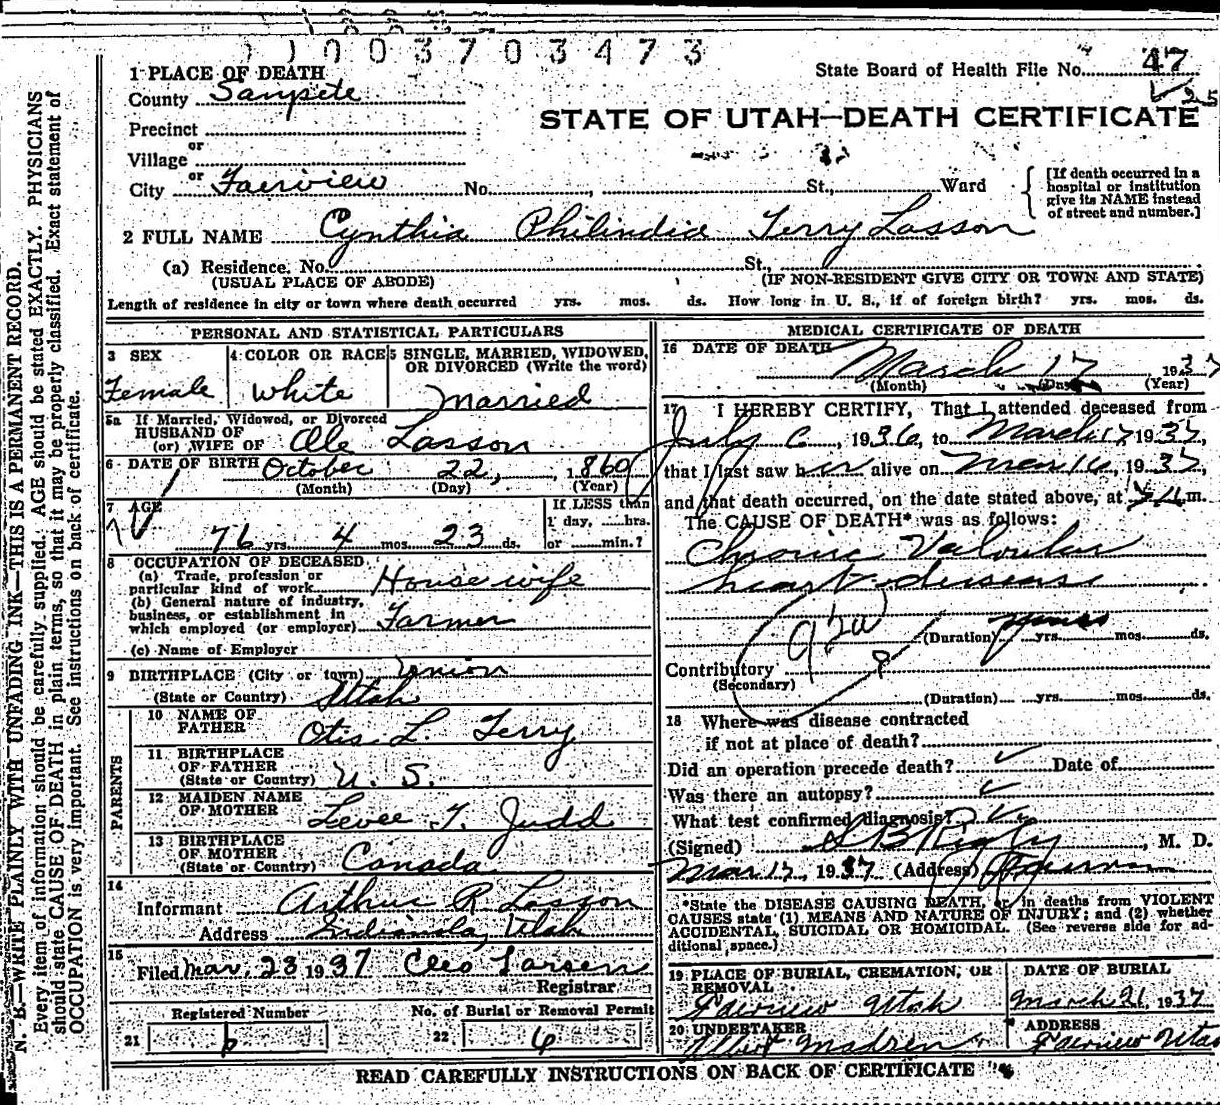 1003703473
State Board of Health File No. 47
STATE OF UTAH—DEATH CERTIFICATE
1 PLACE OF DEATH
County Sanpete
Precinct
or
Village
or
City Fairview No. , St., Ward
[If death occurred in a
hospital or institution
give its NAME instead
of street and number.]
2 FULL NAME Cynthia Philindia Terry Lasson
(a) Residence. No. St.,
(USUAL PLACE OF ABODE) (IF NON-RESIDENT GIVE CITY OR TOWN AND STATE)
Length of residence in city or town where death occurred yrs. mos. ds. How long in U. S., if of foreign birth? yrs. mos. ds.
PERSONAL AND STATISTICAL PARTICULARS
3 SEX
Female
4 COLOR OR RACE
White
5 SINGLE, MARRIED, WIDOWED,
OR DIVORCED (Write the word)
Married
5a If Married, Widowed, or Divorced
HUSBAND OF
(or) WIFE OF Ole Lasson
6 DATE OF BIRTH October 22, 1860
(Month) (Day) (Year)
7 AGE
76 yrs. 4 mos. 23 ds.
If LESS than
1 day, hrs.
or min.?
8 OCCUPATION OF DECEASED
(a) Trade, profession or
particular kind of work Housewife
(b) General nature of industry,
business, or establishment in
which employed (or employer) Farmer
(c) Name of Employer
9 BIRTHPLACE (City or town) Union
(State or Country) Utah
PARENTS
10 NAME OF
FATHER Otis L. Terry
11 BIRTHPLACE
OF FATHER
(State or Country) U. S.
12 MAIDEN NAME
OF MOTHER Levee T. Judd
13 BIRTHPLACE
OF MOTHER
(State or Country) Canada
14
Informant Arthur R. Lasson
Address Indianola, Utah
15
Filed Mar. 23 1937 Cleo Larsen
Registrar
Registered Number
21 6
No. of Burial or Removal Permit
22 6
MEDICAL CERTIFICATE OF DEATH
16 DATE OF DEATH
March 17, 1937
(Month) (Day) (Year)
17 I HEREBY CERTIFY, That I attended deceased from
July 6, 1936, to March 17 1937,
that I last saw her alive on Mar 16, 1937,
and that death occurred, on the date stated above, at m.
The CAUSE OF DEATH* was as follows:
Chronic Valvular
heart disease
92a
(Duration) years yrs. mos. ds.
Contributory
(Secondary)
(Duration) yrs. mos. ds.
18 Where was disease contracted
if not at place of death?
Did an operation precede death? Date of
Was there an autopsy?
What test confirmed diagnosis?
(Signed) Rigby, M. D.
Mar 17, 1937 (Address)
*State the DISEASE CAUSING DEATH, or in deaths from VIOLENT
CAUSES state (1) MEANS AND NATURE OF INJURY; and (2) whether
ACCIDENTAL, SUICIDAL OR HOMICIDAL. (See reverse side for ad-
ditional space.)
19 PLACE OF BURIAL, CREMATION, OR
REMOVAL
Fairview Utah
DATE OF BURIAL
March 21, 1937
20 UNDERTAKER
Albert Madsen
ADDRESS
Fairview Utah
READ CAREFULLY INSTRUCTIONS ON BACK OF CERTIFICATE
N. B.—WRITE PLAINLY WITH UNFADING INK—THIS IS A PERMANENT RECORD.
Every item of information should be carefully supplied. AGE should be stated EXACTLY. PHYSICIANS
should state CAUSE OF DEATH in plain terms, so that it may be properly classified. Exact statement of
OCCUPATION is very important. See instructions on back of certificate.